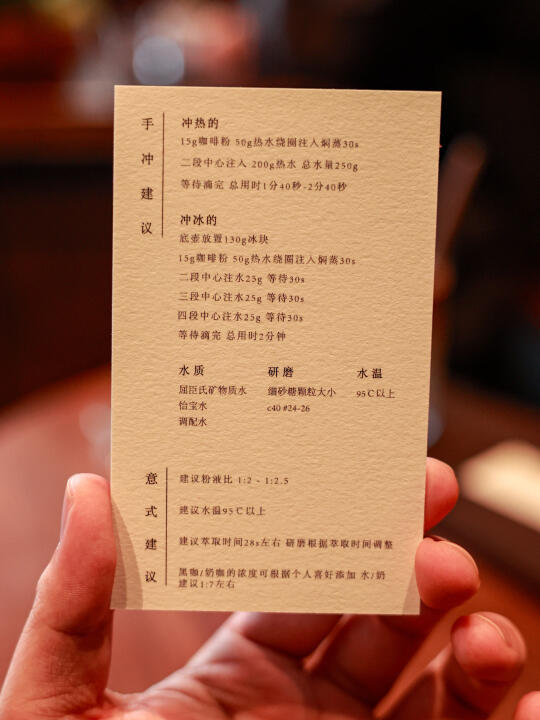 手冲建议
冲热的
15g咖啡粉 50g热水绕圈注入焖蒸30s
二段中心注入 200g热水 总水量250g
等待滴完 总用时1分40秒-2分40秒
冲冰的
底壶放置130g冰块
15g咖啡粉 50g热水绕圈注入焖蒸30s
二段中心注水25g 等待30s
三段中心注水25g 等待30s
四段中心注水25g 等待30s
等待滴完 总用时2分钟
水质
屈臣氏矿物质水
怡宝水
调配水
研磨
细砂糖颗粒大小
c40 #24-26
水温
95℃以上
意式建议
建议粉液比 1:2 - 1:2.5
建议水温95℃以上
建议萃取时间28s左右 研磨根据萃取时间调整
黑咖/奶咖的浓度可根据个人喜好添加 水/奶
建议1:7左右